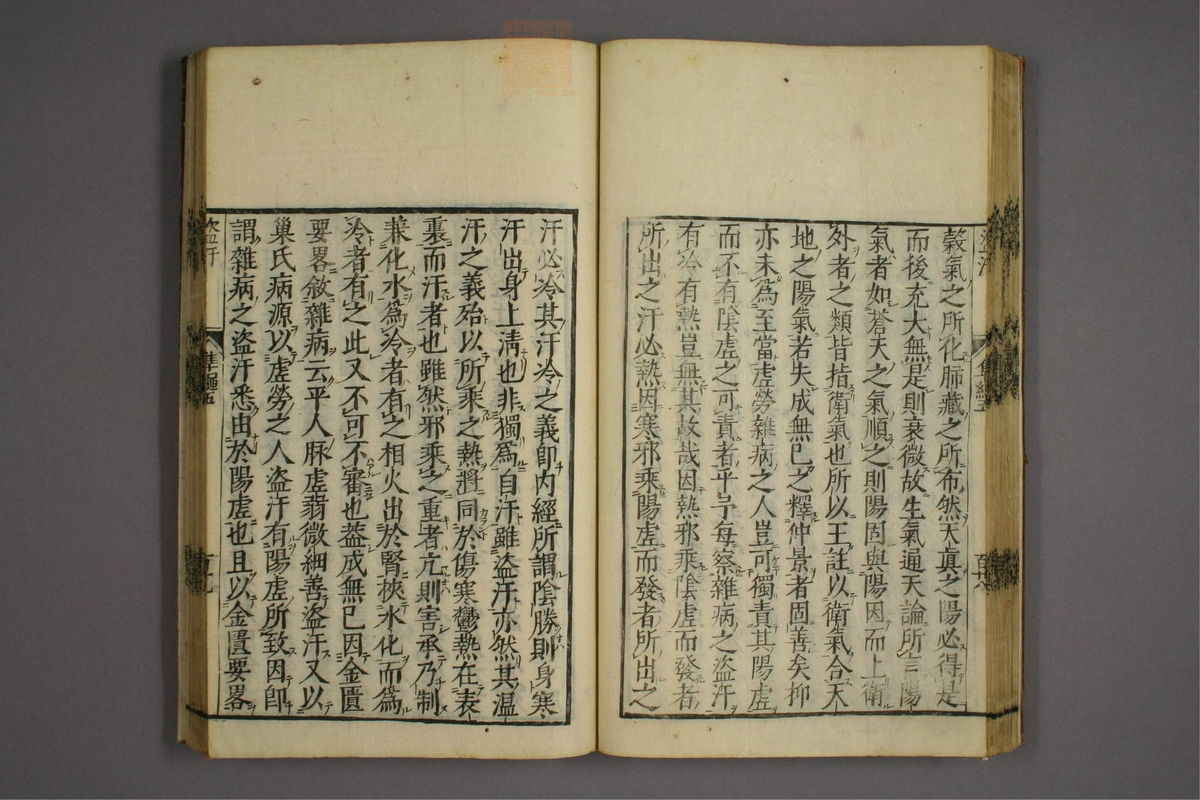 穀氣之所化肺藏之所布然天真之陽必得是
而後充大無是則衰微故生氣通天論所言陽
氣者如蒼天之氣順之則陽固與陽因而上衛
外者之類皆指衛氣也所以王註以衛氣合天
地之陽氣若失成無已之釋仲景者固善矣抑
亦未為至當虛勞雜病之人豈可獨責其陽虛
而不有陰虛之可責者乎予每察雜病之盜汗
有冷有熱豈無其故哉因熱邪乘陰虛而發者
所出之汗必熱因寒邪乘陽虛而發者所出之
汗必冷其汗冷之義即内經所謂陰勝則身寒
汗出身上清也非獨爲自汗雖盜汗亦然其温
汗之義殆以所乘之熱將同於傷寒鬱熱在表
裏而汗者也雖然邪乘之重者亢則害承乃制
兼化水爲冷者有之相火出於腎挾水化而爲
冷者有之此又不可不審也蓋成無已因金匱
要畧敘雜病云平人脉虛弱微細善盜汗又以
巢氏病源以虛勞之人盜汗有陽虛所致因即
謂雜病之盜汗悉由於陽虛也且以金匱要畧
盜汗
準繩五